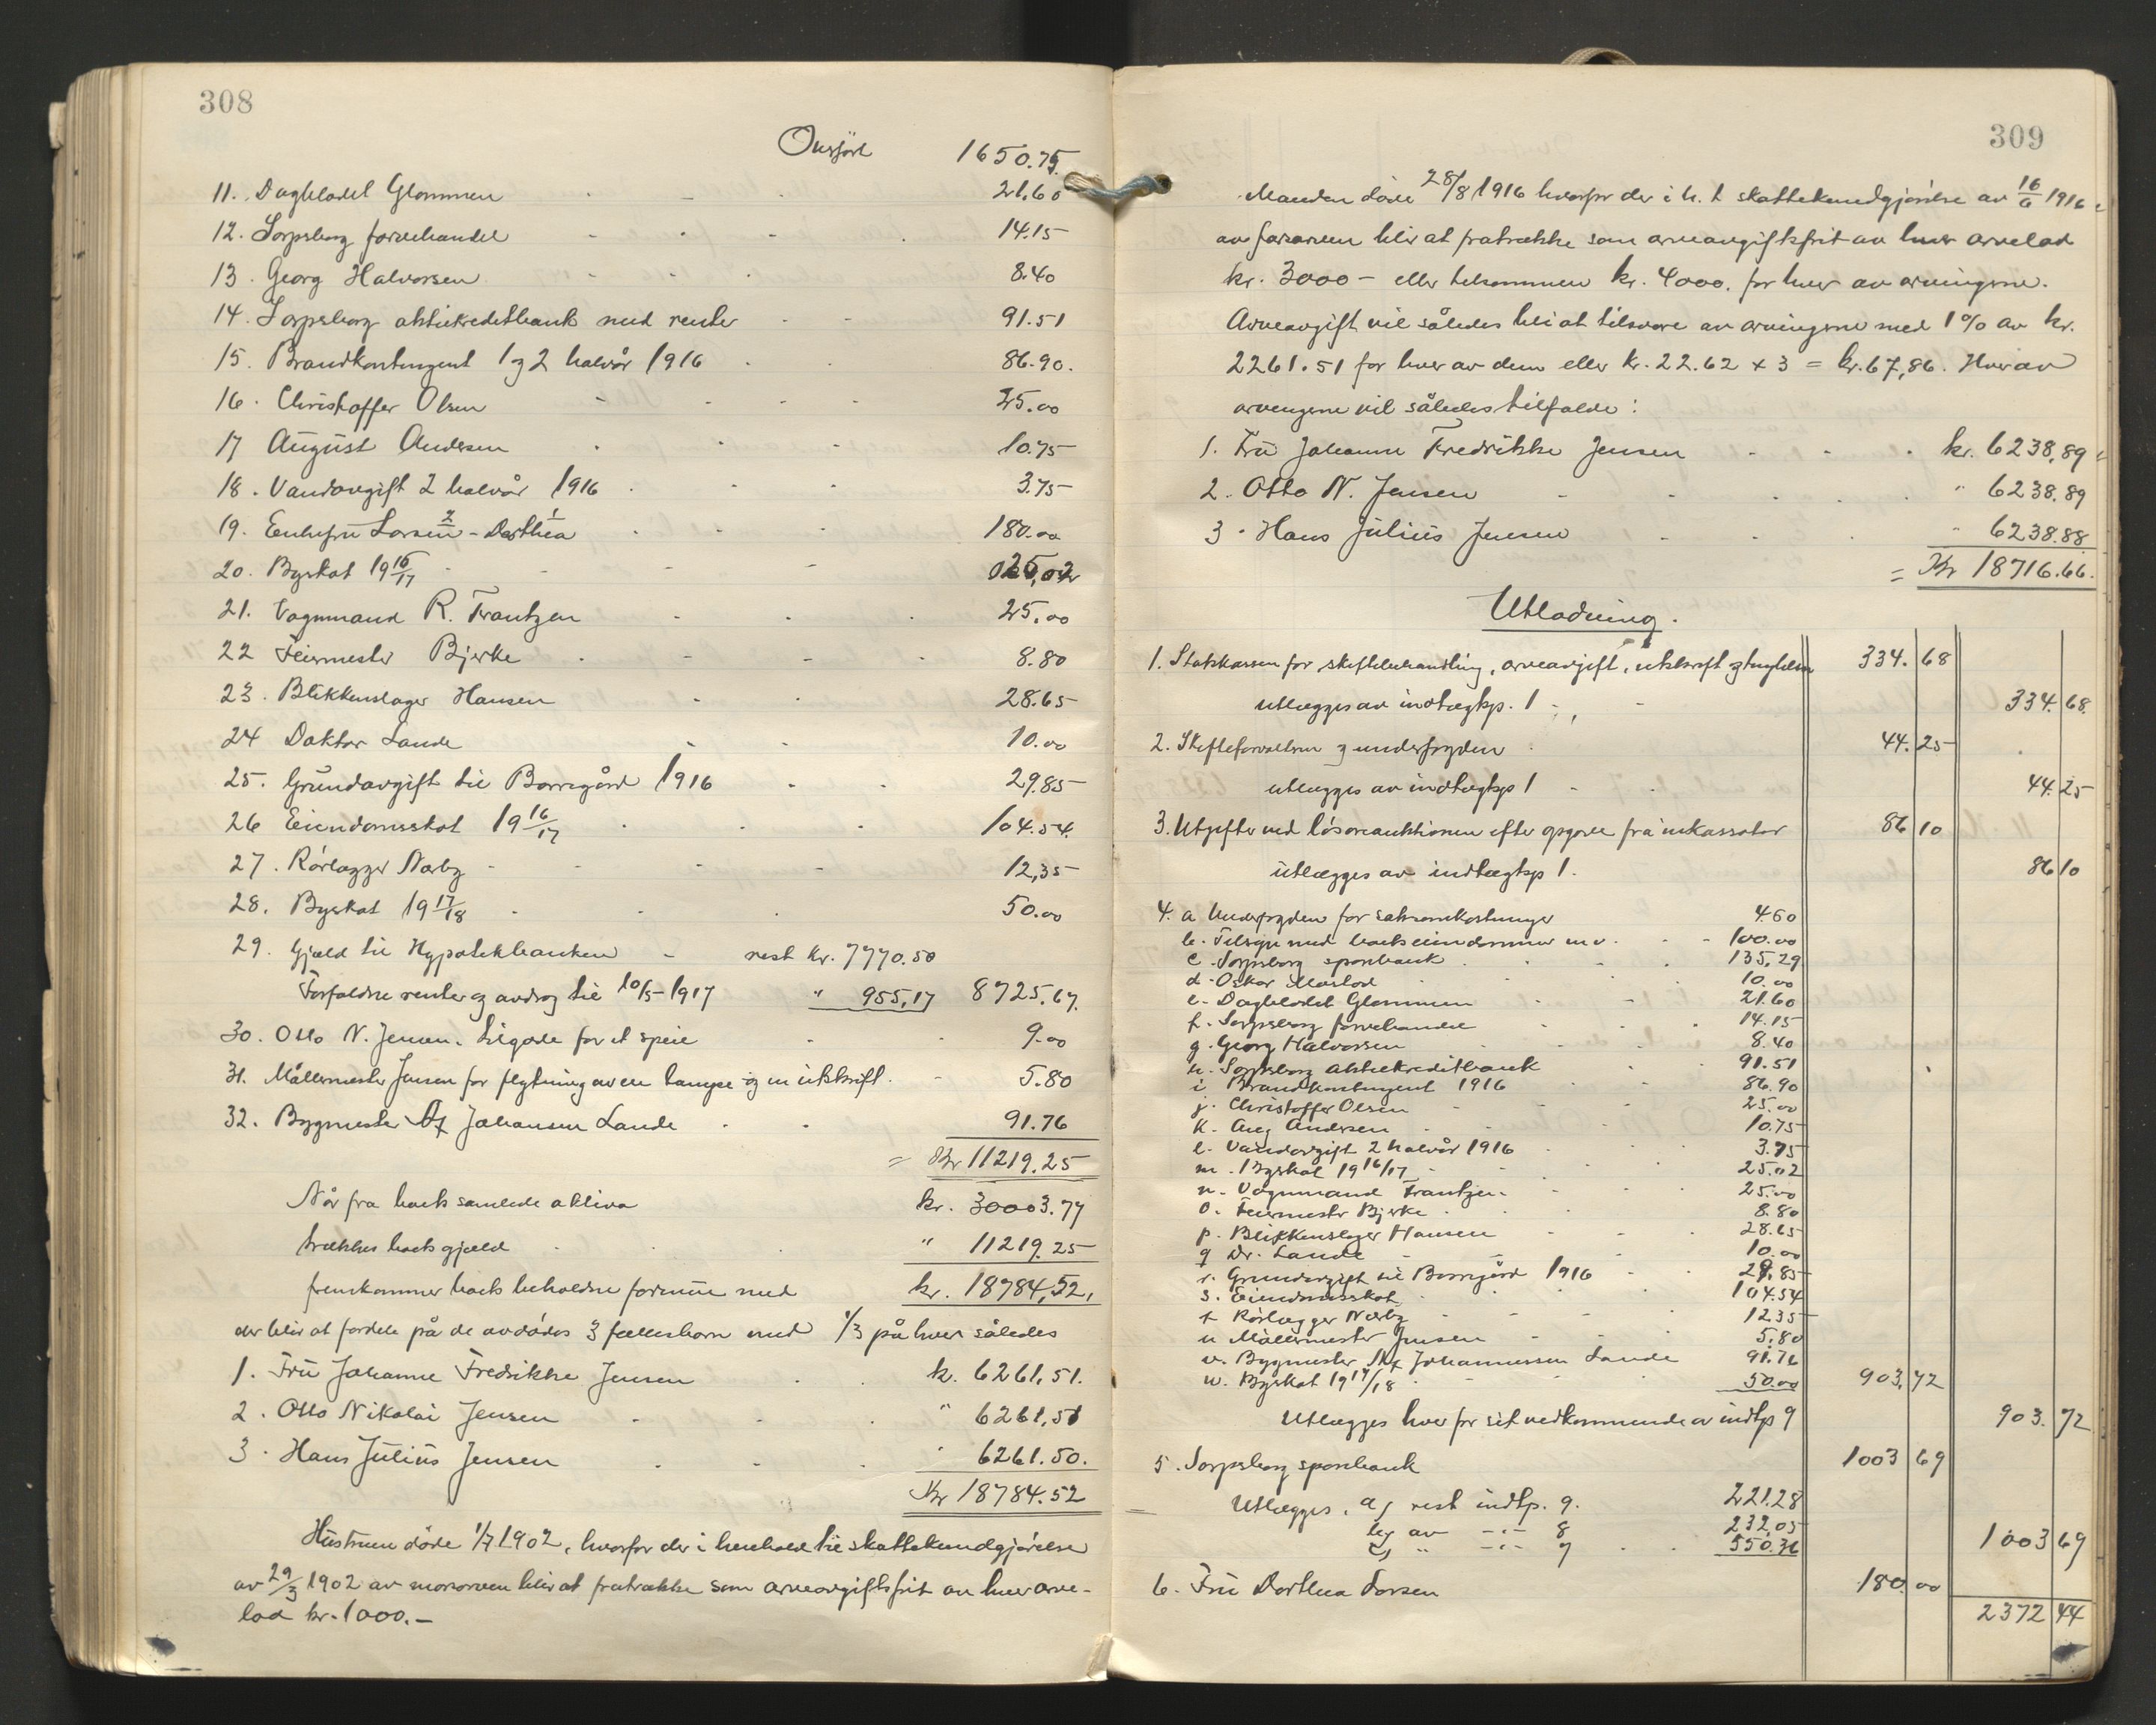 308
Overført 1650.75
11. Dagbladet Glommen 21.60
12. Sarpsborg farvehandel 14.15
13. Georg Halvorsen 8.40
14. Sarpsborg aktiekreditbank med renter 91.51
15. Brandkontingent 1 og 2 halvår 1916 86.90.
16. Christoffer Olsen 25.00
17 August Andersen 10.75
18. Vandavgift 2 halvår 1916 3.75
19. Enkefru Larsen - Dorthea 180.00
20. Byskat 19 16/17 25,02
21. Vognmand R. Frantzen 25.00
22 Feiermester Bjerke 8.80
23. Blikkenslager Hansen 28.65
24 Doktor Lande 10.00
25. Grundavgift til Borregård 1916 29.85
26 Eiendomsskat 19 16/17 104.54.
27. Rørlægger Nærby 12,35
28. Byskat 19 17/18 50.00
29. Gjæld til Hypotekbanken - rest kr. 7770.50
Forfaldne renter og avdrag til 10/5-1917 " 955,17 8725.67.
30. Otto N. Jensen. tilgode for et speil 9.00
31. Målermester Jensen for flytning av en lampe og en utskrift. 5.80
32. Bygmester Johansen Lande 91.76
= Kr 11219.25
Når fra boets samlede aktiva kr. 30003.77
trækkes boets gjæld " 11219.25
fremkommer boets beholdne formue med kr. 18784,52,
der blir at fordele på de avdødes 3 fællesbarn med 1/3 på hver således
1. Fru Johanne Fredrikke Jensen k. 6261,51.
2. Otto Nikolai Jensen " 6261,51
3. Hans Julius Jensen " 6261.50.
Kr 18784.52
Hustruen døde 1/7 1902, hvorfor der i henhold til skattekundgjørelse
av 29/3 1902 av morarven blir at fratrække som arveavgiftsfrit av hver arve-
lod kr. 1000.-
309
Manden døde 28/8 1916 hvorfor der i h. t skattekundgjørelse av 16/6 1916
av fararven blir at fratrække som arveavgiftsfrit av hver arvelod
kr. 3000 - eller tilsammen kr. 4000. for hver av arvingerne.
Arveavgift vil således bli at tilsvare av arvingerne med 1% av kr.
2261.51 for hver av dem eller kr. 22.62 x 3 = kr. 67,86. Hver av
arvingerne vil således tilfalde:
1. Fru Johanne Fredrikke Jensen kr. 6238,89
2. Otto N. Jensen " 6238.89
3. Hans Julius Jensen " 6238.88
= Kr 18716.66.
Utlodning.
1. Statskassen for skiftebehandling, arveavgift, utskrift og tinglæsn 334.68
utlægges av indtægtsp. 1 334.68.
2. Skifteforvalteren og underfogden 44.25
utlægges av indtægtsp 1 44.25
3. Utgifter ved løsøreauktionen efter opgave fra inkassator 86 10
utlægges av indtægtsp 1. 86 10
4. a Underfogden for saksomkostninger 4.60
b. Tilsyn med boets eiendommer m.v. 100.00
c. Sarpsborg sparebank 135,29
d. Oskar 10.00
e. Dagbladet Glommen 21.60
f. Sarpsborg farvehandel 14.15
g. Georg Halvorsen 8.40
h. Sarpsborg aktiekreditbank 91.51
i Brandkontingent 1916 86.90
j. Christoffer Olsen 25.00
k. Aug Andersen 10.75
l. Vandavgift 2 halvår 1916 3.75
m. Byskat 19 16/17 25.02
n. Vognmand Frantzen 25.00
o. Feiermester Bjerke 8.80
p. Blikkenslager Hansen 28.65
q Dr. Lande 10.00
r. Grundavgift til Borregård 1916 29.85
s. Eiendomsskat 104.54
t Rørlægger Nærby 12.35
u Målermester Jensen 5.80
v. Bygmester Johannessen Lande 91.76
w. Byskat 19 17/18 50.00 903,72
Utlægges hver for sit vedkommende av indtp 9 903.72
5. Sarpsborg sparebank 1003 69
Utlægges, a) rest indtp. 9. 221.28
b) av -"- 8 232,05
c) " -"- 7 550.36 1003 69
6. Fru Dorthea Larsen 180.00
2372 44